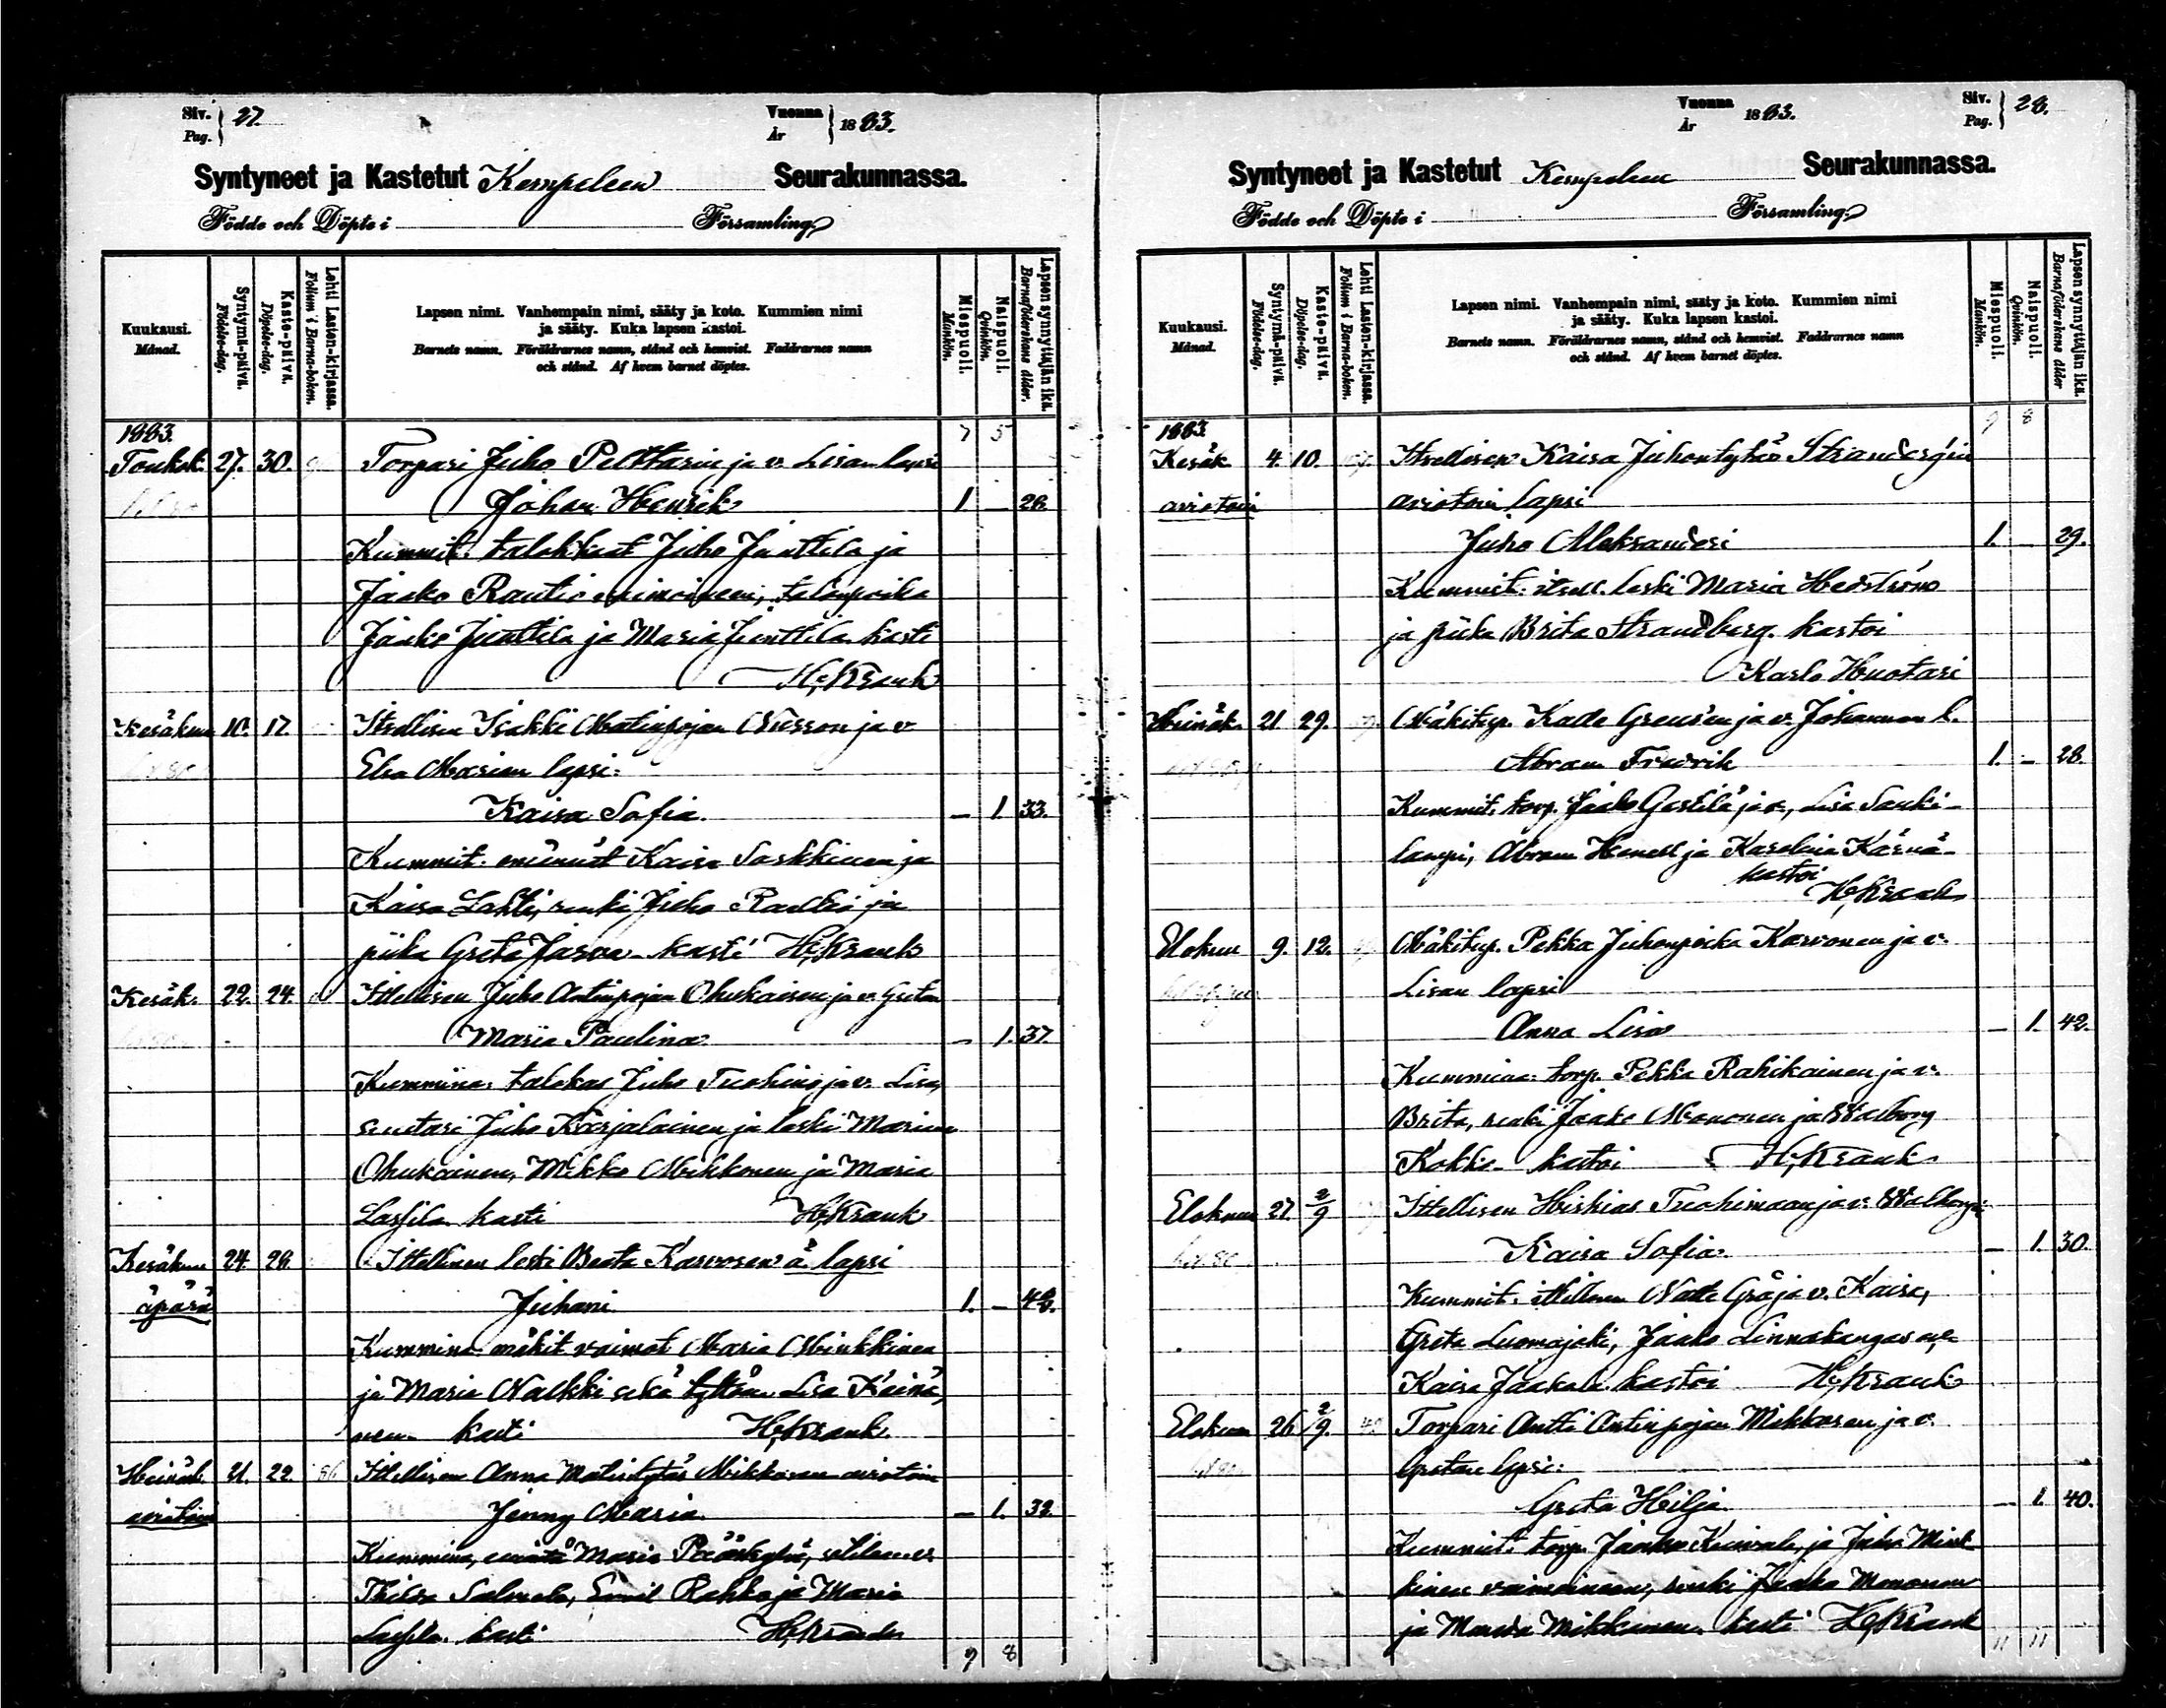 Siv. Pag. } 27.
Vuonna År } 1883.
Syntyneet ja Kastetut Kempeleen Seurakunnassa.
Födde och Döpte i Församling
Kuukausi. Månad.
Syntymä-päivä. Födelse-dag.
Kaste-päivä. Döpelse-dag.
Lehti Lasten-kirjassa. Folium i Barna-boken.
Lapsen nimi. Vanhempain nimi, sääty ja koto. Kummien nimi
ja sääty. Kuka lapsen kastoi.
Barnets namn. Föräldrarnes namn, stånd och hemvist. Faddrarnes namn
och stånd. Af hvem barnet döptes.
Miespuoli. Mankön.
Naispuoli. Qvinkön.
Lapsen synnyttäjän ikä. Barnaföderskans ålder.
1883. 7 5
Toukok. 27. 30. Torpari Juho Pelttarin ja v. Lisan lapsi
Johan Henrik 1 – 26
Kummit: talokkaat Juho Junttila ja
Jaako Rautio vaimoineen, talonpoika
Jaako Junttila ja Maria Junttila kasti
H. Krank
Kesäkuu 10. 17. Itsellisen Isakki Matinpojan ja v
Elsa Marian lapsi:
Kaisa Sofia. – 1. 33.
Kummit: emännät Kaisa Sarkkinen ja
Kaisa Lahti, renki Juho Rautio ja
piika Greta Jarva – kasti H. Krank
Kesäk. 22. 24. Itellisen Juho Antinpojan Ohukaisen ja v. Gretan
Maria Paulina – 1. 37
Kummina: talokas Juho Tuohino ja v. Lisa,
suutari Juho Karjalainen ja leski Maria
Ohukainen, Mikko Mikkonen ja Maria
Lassila kasti H. Krank
Kesäkuu 24. 26. Itellinen leski Beata Karvosen ä. lapsi
äpärä Juhani 1. – 43.
Kummina: mäkit vaimot Maria Minkkinen
ja Maria Nalkki sekä tyttären Lisa Kainu,
nen kasti H. Krank
Heinäk. 21. 22. 86 Itellisen Anna Matintytär Mikkosen aviotoin
aviotoin Jenny Maria. – 1. 32.
Kummina, Maria Pääskylä,
Salmela, Emil Rahko ja Maria
Lassila. kasti H. Krank
9 8
Vuonna År 1883.
Siv. Pag. } 28.
Syntyneet ja Kastetut Kempeleen Seurakunnassa.
Födde och Döpte i Församling
Kuukausi. Månad.
Syntymä-päivä. Födelse-dag.
Kaste-päivä. Döpelse-dag.
Lehti Lasten-kirjassa. Folium i Barna-boken.
Lapsen nimi. Vanhempain nimi, sääty ja koto. Kummien nimi
ja sääty. Kuka lapsen kastoi.
Barnets namn. Föräldrarnes namn, stånd och hemvist. Faddrarnes namn
och stånd. Af hvem barnet döptes.
Miespuoli. Mankön.
Naispuoli. Qvinkön.
Lapsen synnyttäjän ikä. Barnaföderskans ålder
1883. 9 8
Kesäk 4. 10. Itsellisen Kaisa Juhontytär Strandbergin
aviotoin aviotoin lapsi
Juho Aleksanderi 1. – 29.
Kummit: itsell. leski Maria Hedström
ja piika Brita Strandberg. kastoi
Karlo Huotari
Heinäk. 21 29. Mäkitup. Kalle Greusen ja v. Johannan l.
Abram Fredrik 1. – 28.
Kummit. torp. Jaako Gostila ja v., Lisa Sauki-
lampi, Abram Henell ja Karolina Kärnä-
kastoi
H. Krank
Elokuu 9. 12. Mäkitup. Pekka Juhonpoika Karvonen ja v.
Lisan lapsi
Anna Lisa – 1. 42.
Kummina: torp. Pekka Rahikainen ja v.
Brita, renki Jaako Mononen ja Walborg
Kokko – kastoi H. Krank
Elokuu 27. 2/9 Itellisen Hiskias Tuohimaan ja v: Walborgi:
Kaisa Sofia. – 1. 30.
Kummit: itellinen Matte Grå ja v. Kaisa,
Greta Luomajoki, Jaako Linnakangas
Kaisa Jaakola kastoi H. Krank
Elokuu 26 2/9. Torpari Antti Antinpojan Mikkosen ja v.
Gretan lapsi:
Greta Hilja – 1. 40.
Kummit: torp. Jaako Kuivala, ja Juho Mink-
kinen vaimoineen, renki Jaako Mononen
ja Maria Mikkonen. kasti H. Krank
11 11